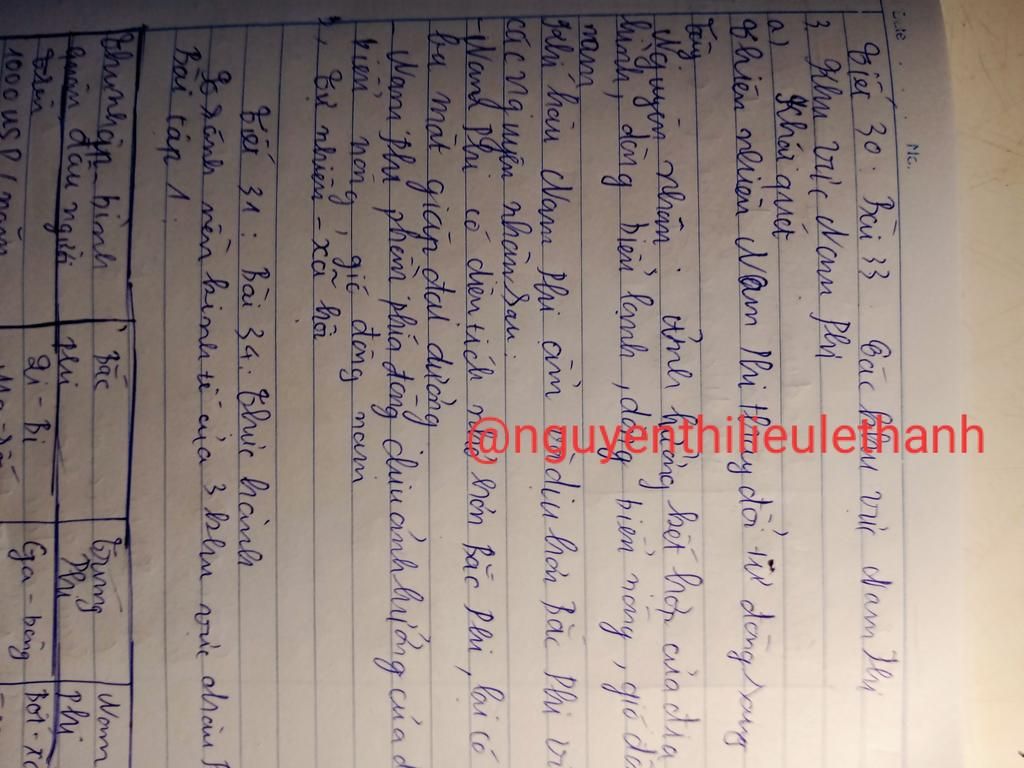 Tiết 30: Bài 33 Các khu vực Nam Phi
3. Khu vực Nam Phi
a) Khái quát
Thiên nhiên Nam Phi thay đổi từ đông sang
tây
Nguyên nhân: Ảnh hưởng kết hợp của địa
hình, dòng biển lạnh, dòng biển nóng, gió
nam
Khí hậu Nam Phi ẩm và dịu hơn Bắc Phi vì
các nguyên nhân sau:
- Nam Phi có diện tích nhỏ hơn Bắc Phi, lại có
ba mặt giáp đại dương
- Nam Phi phần phía đông chịu ảnh hưởng của
biển nóng gió đông nam
tự nhiên - xã hội
Tiết 31: Bài 34: Thực hành
So sánh nền kinh tế của 3 khu vực châu
Bài tập 1:
Thu nhập bình Bắc Trung Nam
quân đầu người Phi Phi Phi
Trên Li-Bi Ga-bông Bốt-xo
1000 USD/năm
@nguyenthilieulethanh